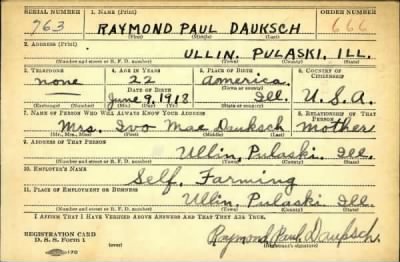 SERIAL NUMBER 1. NAME (Print) ORDER NUMBER
763 RAYMOND PAUL DAUKSCH 666
(First) (Middle) (Last)
2. ADDRESS (Print)
ULLIN, PULASKI, ILL.
(Number and street or R. F. D. number) (Town) (County) (State)
3. TELEPHONE 4. AGE IN YEARS 5. PLACE OF BIRTH 6. COUNTRY OF CITIZENSHIP
none 22 America
DATE OF BIRTH (Town or county)
June 9, 1918 Ill. U.S.A.
(Mo.) (Day) (Yr.) (State or country)
7. NAME OF PERSON WHO WILL ALWAYS KNOW YOUR ADDRESS 8. RELATIONSHIP OF THAT PERSON
Mrs. Ivo Mae Dauksch Mother
(Mr., Mrs., Miss) (First) (Middle) (Last)
9. ADDRESS OF THAT PERSON
Ullin, Pulaski Ill.
(Number and street or R. F. D. number) (Town) (County) (State)
10. EMPLOYER'S NAME
Self, Farming
11. PLACE OF EMPLOYMENT OR BUSINESS
Ullin, Pulaski Ill.
(Number and street or R. F. D. number) (Town) (County) (State)
I AFFIRM THAT I HAVE VERIFIED ABOVE ANSWERS AND THAT THEY ARE TRUE.
REGISTRATION CARD
D. S. S. Form 1 Raymond Paul Dauksch
(Registrant's signature)